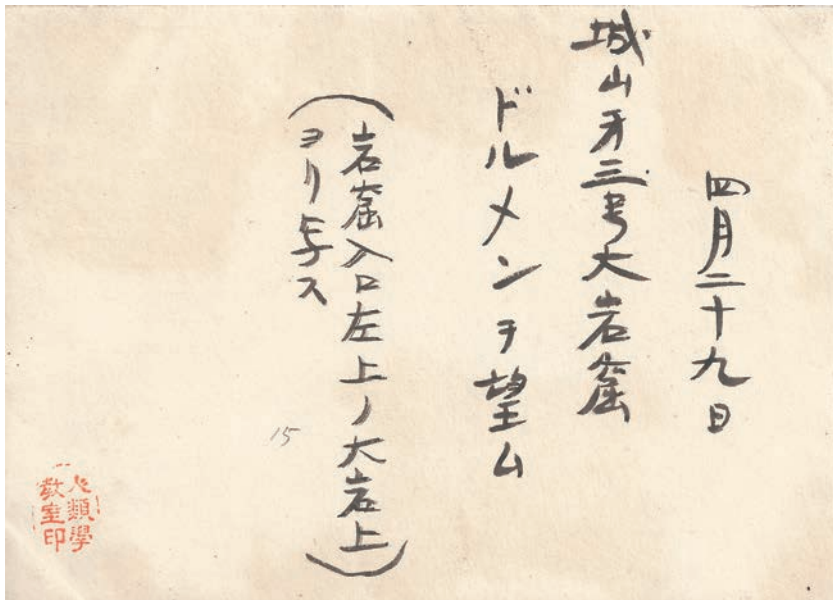 四月二十九日
城山第三号大岩窟
ドルメンヲ望ム
(岩窟入口左上ノ大岩上
ヨリ写ス)
15
人類學
教室印